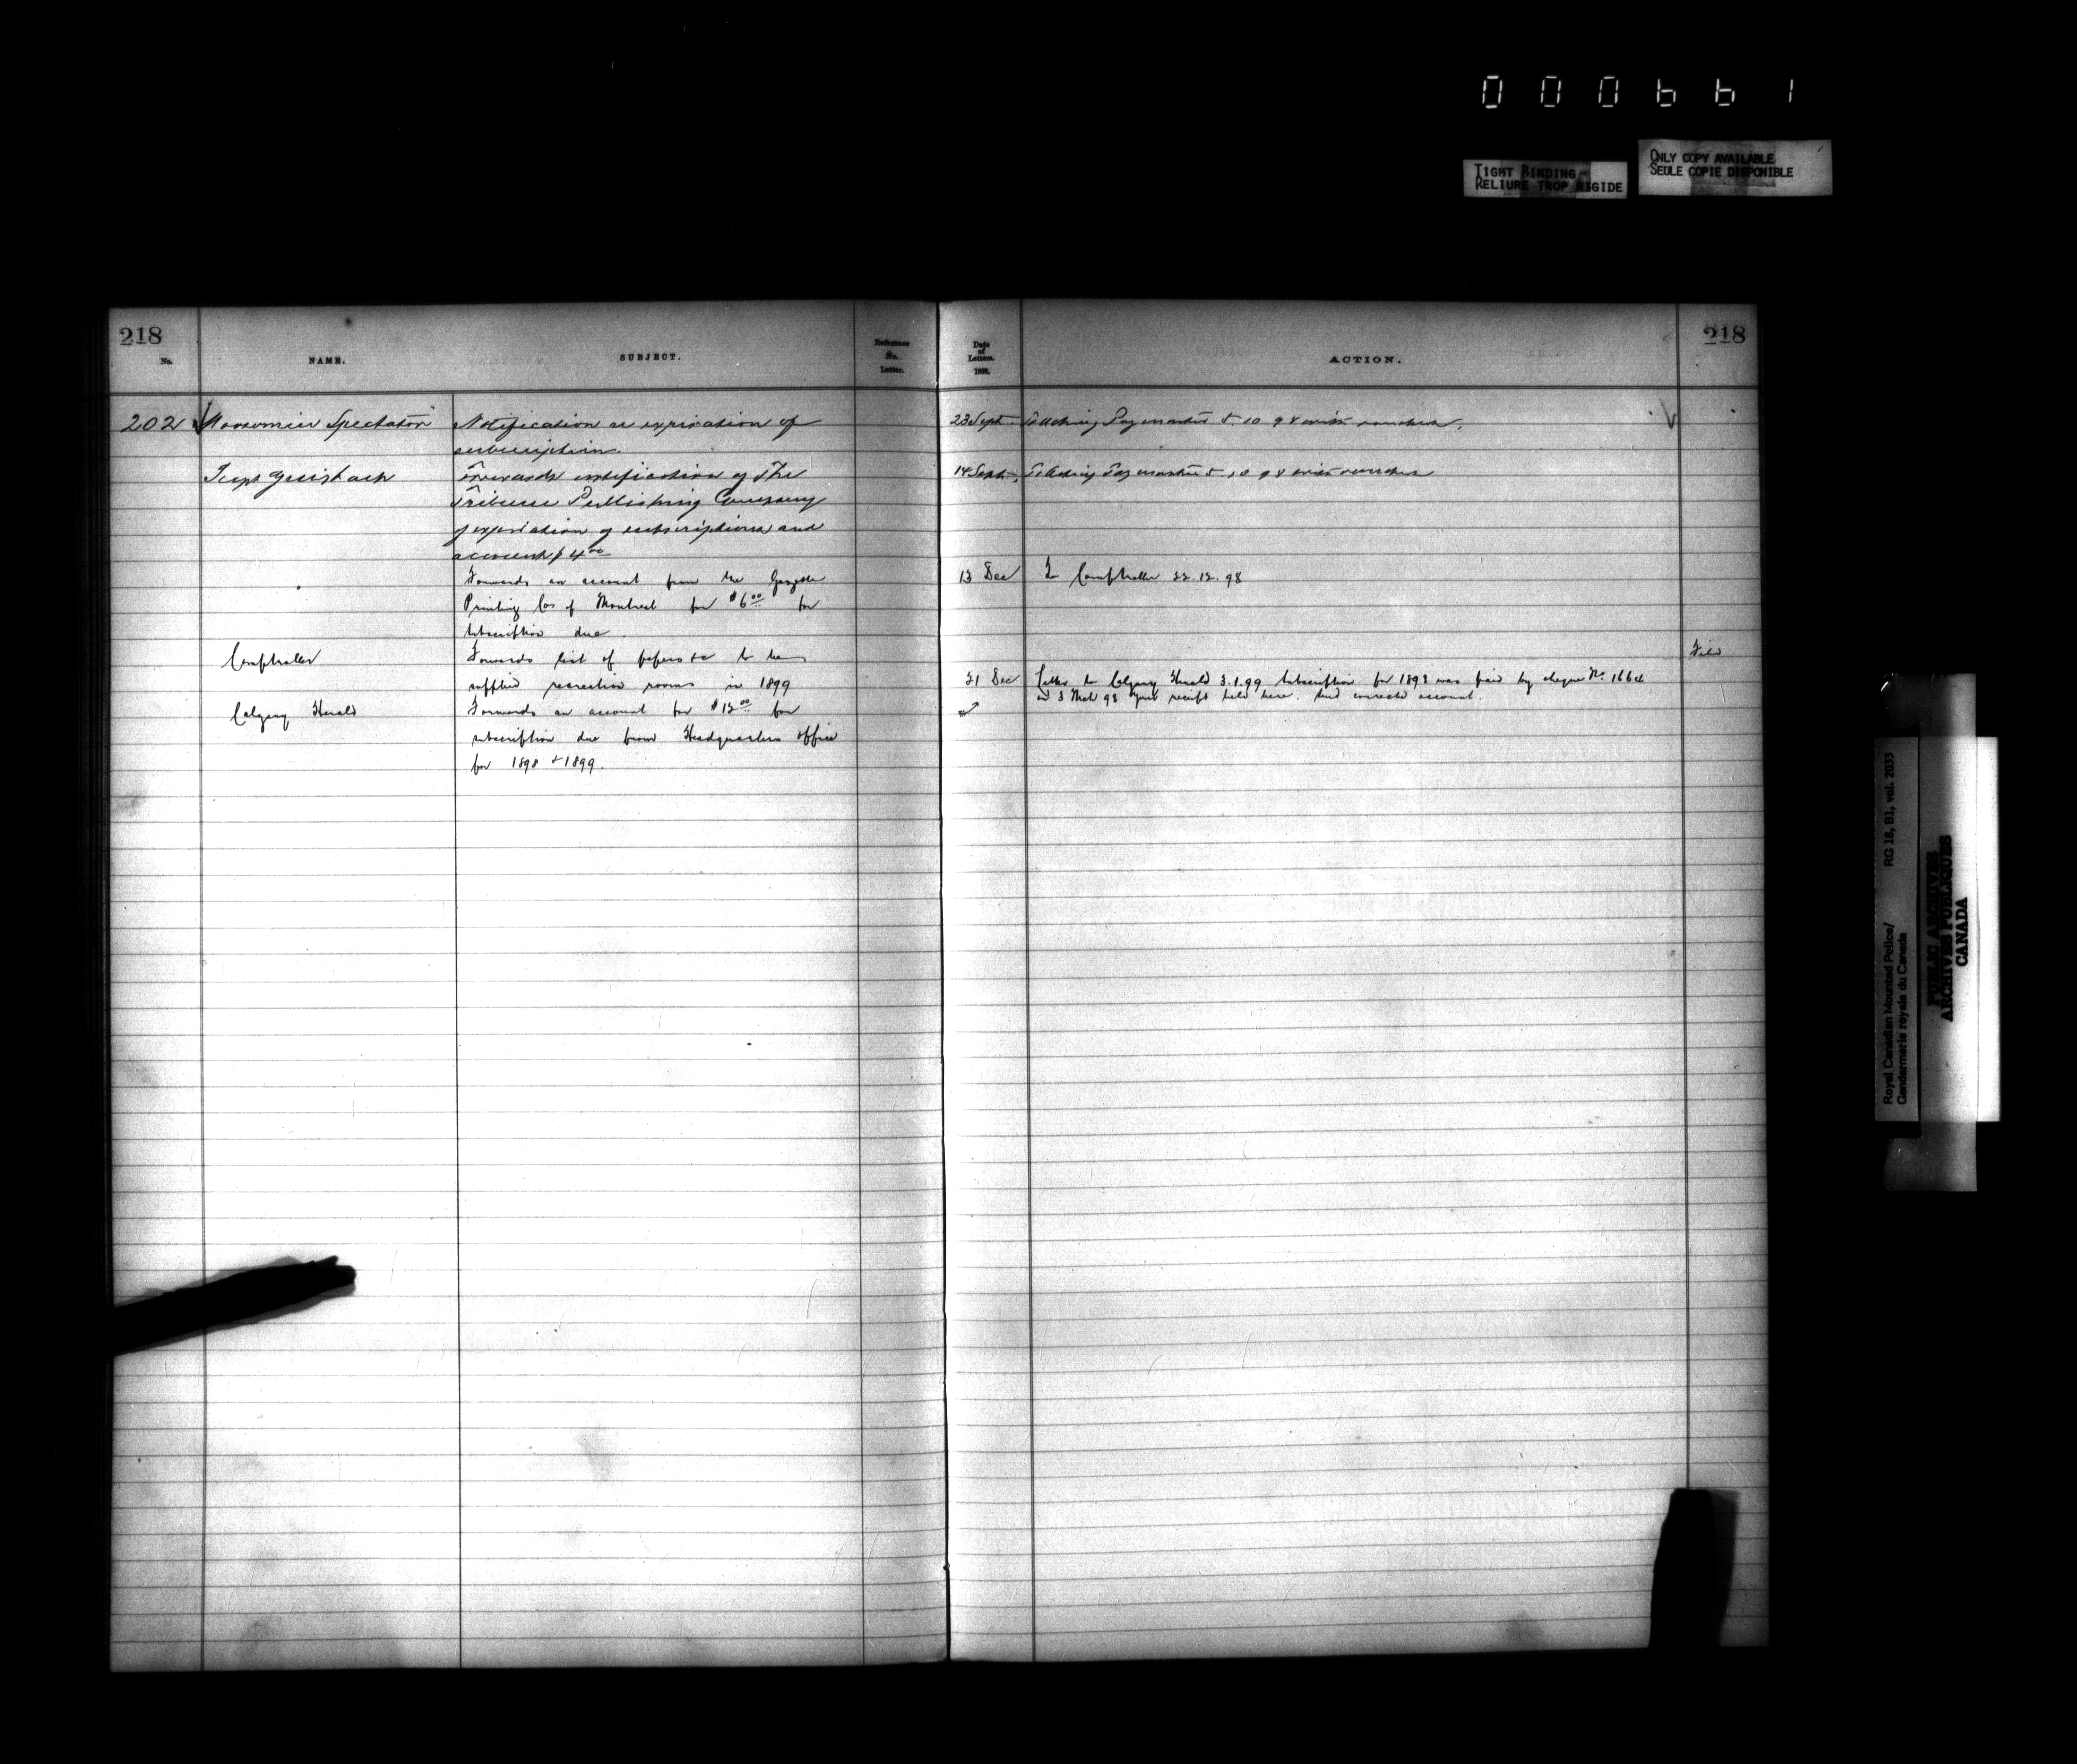 000661
TIGHT BINDING
RELIURE TROP RIGIDE
ONLY COPY AVAILABLE
SEULE COPIE DISPONIBLE
218
No.
NAME.
SUBJECT.
Reference
No.
Letter.
202 Moosomin Spectator
Notification re expiration of
subscription.
Supt Griesbach
Forwards notification of The
Tribune Publishing Company
of expiration of subscriptions and
account $4 00
Forwards an account from the Gazette
Printing Co. of Montreal for $6 00 for
subscription due.
Comptroller
Forwards list of papers &c to be
supplied recreation rooms in 1899
Calgary Herald
Forwards an account for $12 00 for
subscription due from Headquarters office
for 1898 & 1899.
Date
of
Letters.
1898.
ACTION.
218
23 Sept. To Acting Paymaster 5.10.98 with voucher.
14 Sept. To Acting Paymaster 5.10.98 with voucher
13 Dec To Comptroller 22.12.98
Filed
31 Dec Letter to Calgary Herald 3.1.99 subscription for 1898 was paid by cheque No. 1664
on 3 Mch 98 your receipt held here. Send corrected account.
Royal Canadian Mounted Police/
Gendarmerie royale du Canada
RG 18, B1, vol. 2033
PUBLIC ARCHIVES
ARCHIVES PUBLIQUES
CANADA